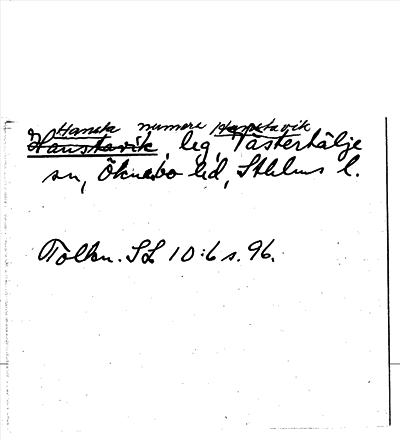 Hansta numera Hanstavik
Hanstavik, leg, Västerhälje
sn, Öknebo hd, Sthlms l.
Tolkn. SL 10:6 s. 96.